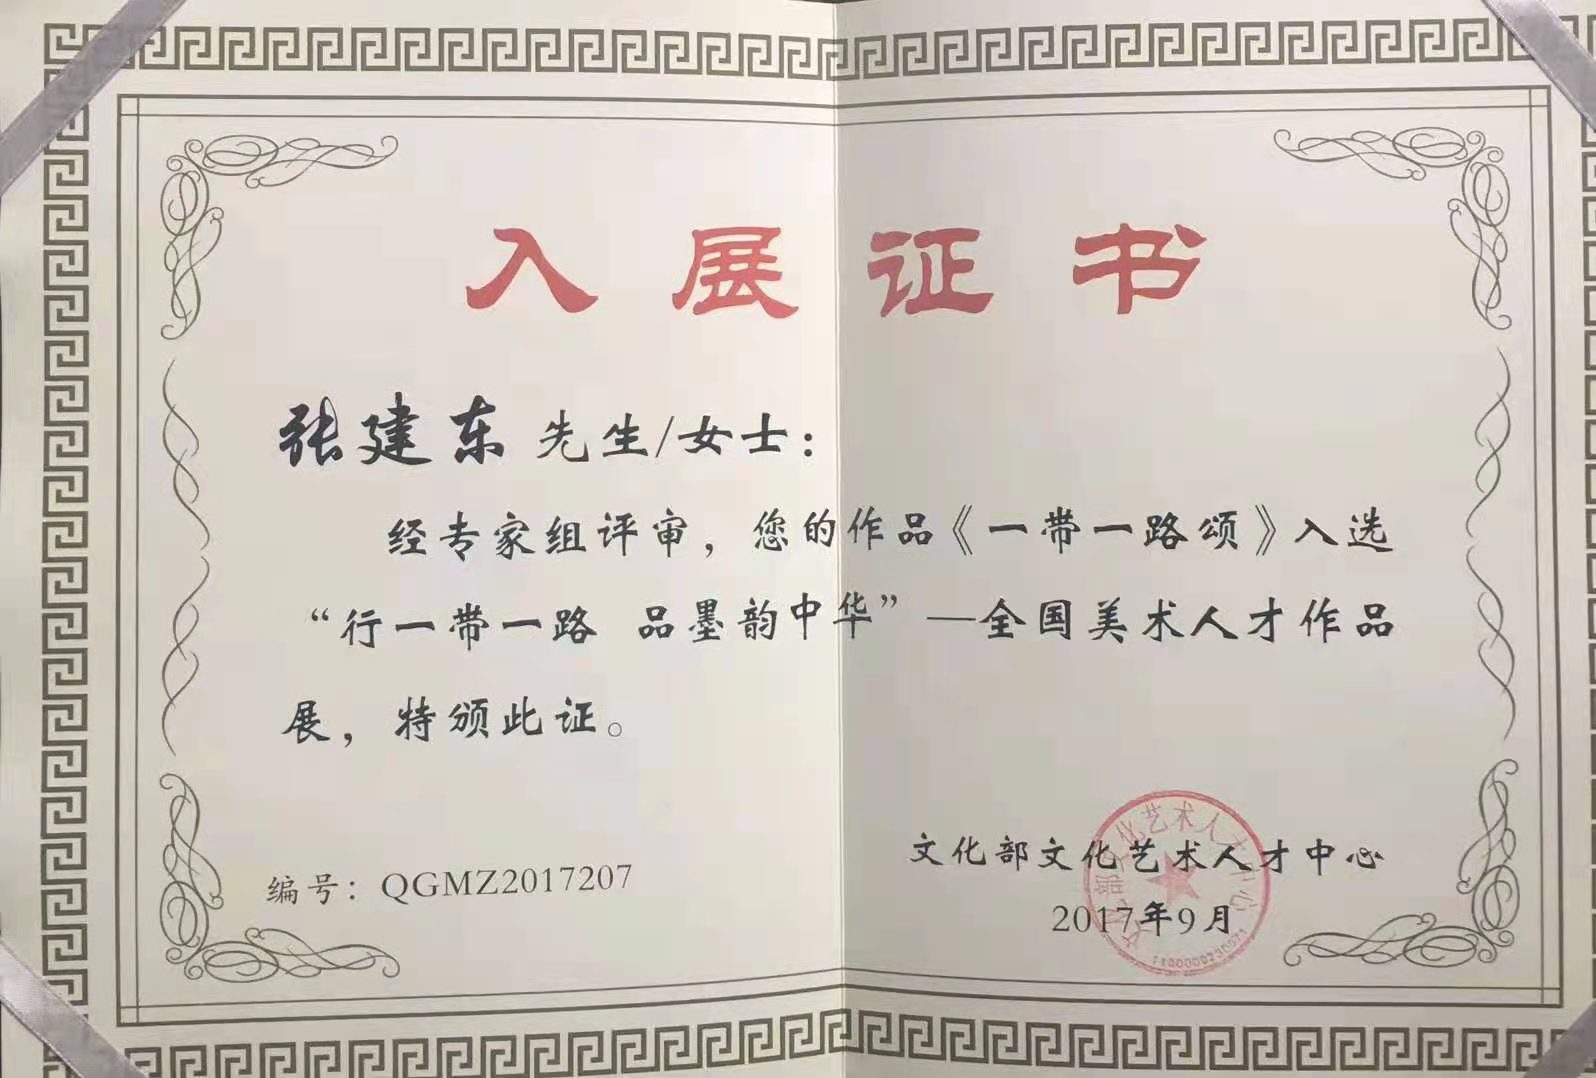 入展证书
张建东 先生/女士：
经专家组评审，您的作品《一带一路颂》入选
“行一带一路 品墨韵中华”—全国美术人才作品
展，特颁此证。
文化部文化艺术人才中心
编号：QGMZ2017207
2017年9月
文化部文化艺术人才中心